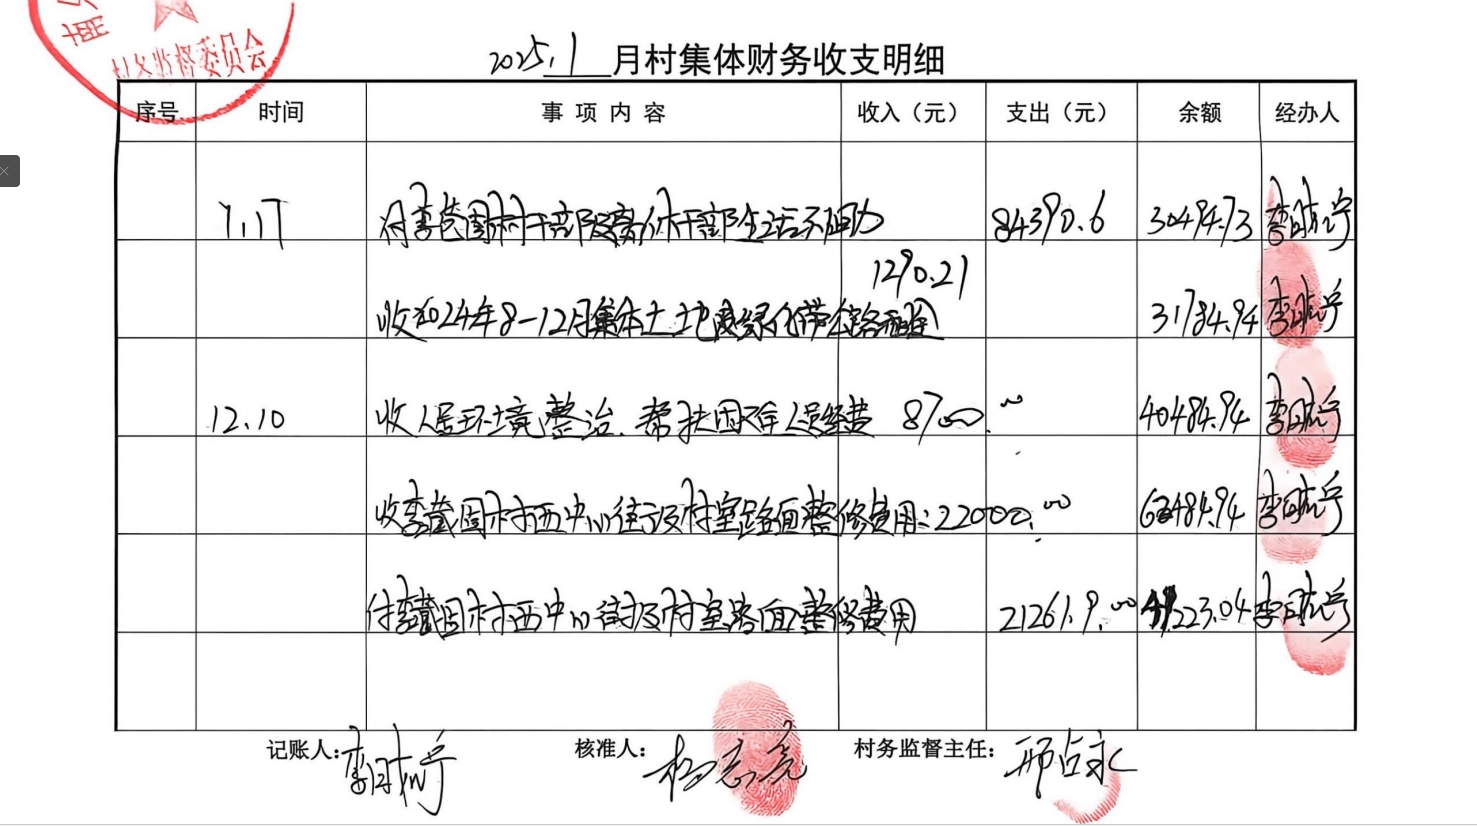 村务监督委员会
2025.1月村集体财务收支明细
序号 时间 事项内容 收入（元） 支出（元） 余额 经办人
1.17 付李 园村干部及离休干部生活补助 84390.6 30494.73
1290.21
收2024年8-12月集体土地及绿化带 路租金 31784.94
12.10 收人居环境整治、帮扶困难人员经费 8700.00 40484.94
收李 园村西中心街及村室路面整修费用: 22000.00 62484.94
付李 园村西中心街及村室路面整修费用 21261.9.00 223.04
记账人: 核准人: 杨志亮 村务监督主任: 邢占永